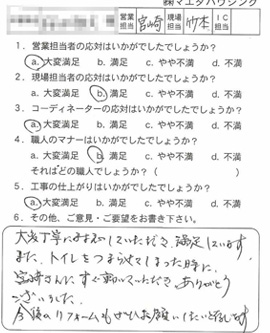 ㈱マエダハウジング
営業担当 宮崎 現場担当 竹本 IC担当
1. 営業担当者の応対はいかがでしたでしょうか?
a. 大変満足 b. 満足 c. やや不満 d. 不満
2. 現場担当者の応対はいかがでしたでしょうか?
a. 大変満足 b. 満足 c. やや不満 d. 不満
3. コーディネーターの応対はいかがでしたでしょうか?
a. 大変満足 b. 満足 c. やや不満 d. 不満
4. 職人のマナーはいかがでしたでしょうか?
a. 大変満足 b. 満足 c. やや不満 d. 不満
それはどの職人でしょうか?( )
5. 工事の仕上がりはいかがでしたでしょうか?
a. 大変満足 b. 満足 c. やや不満 d. 不満
6. その他、ご意見・ご要望をお書き下さい。
大変丁寧に対応していただき、満足しています。
また、トイレをつまらせてしまった時に、
宮崎さんに、すぐ動いていただき、ありがとう
ございました。
今後のリフォームもぜひお願いしたいと思います